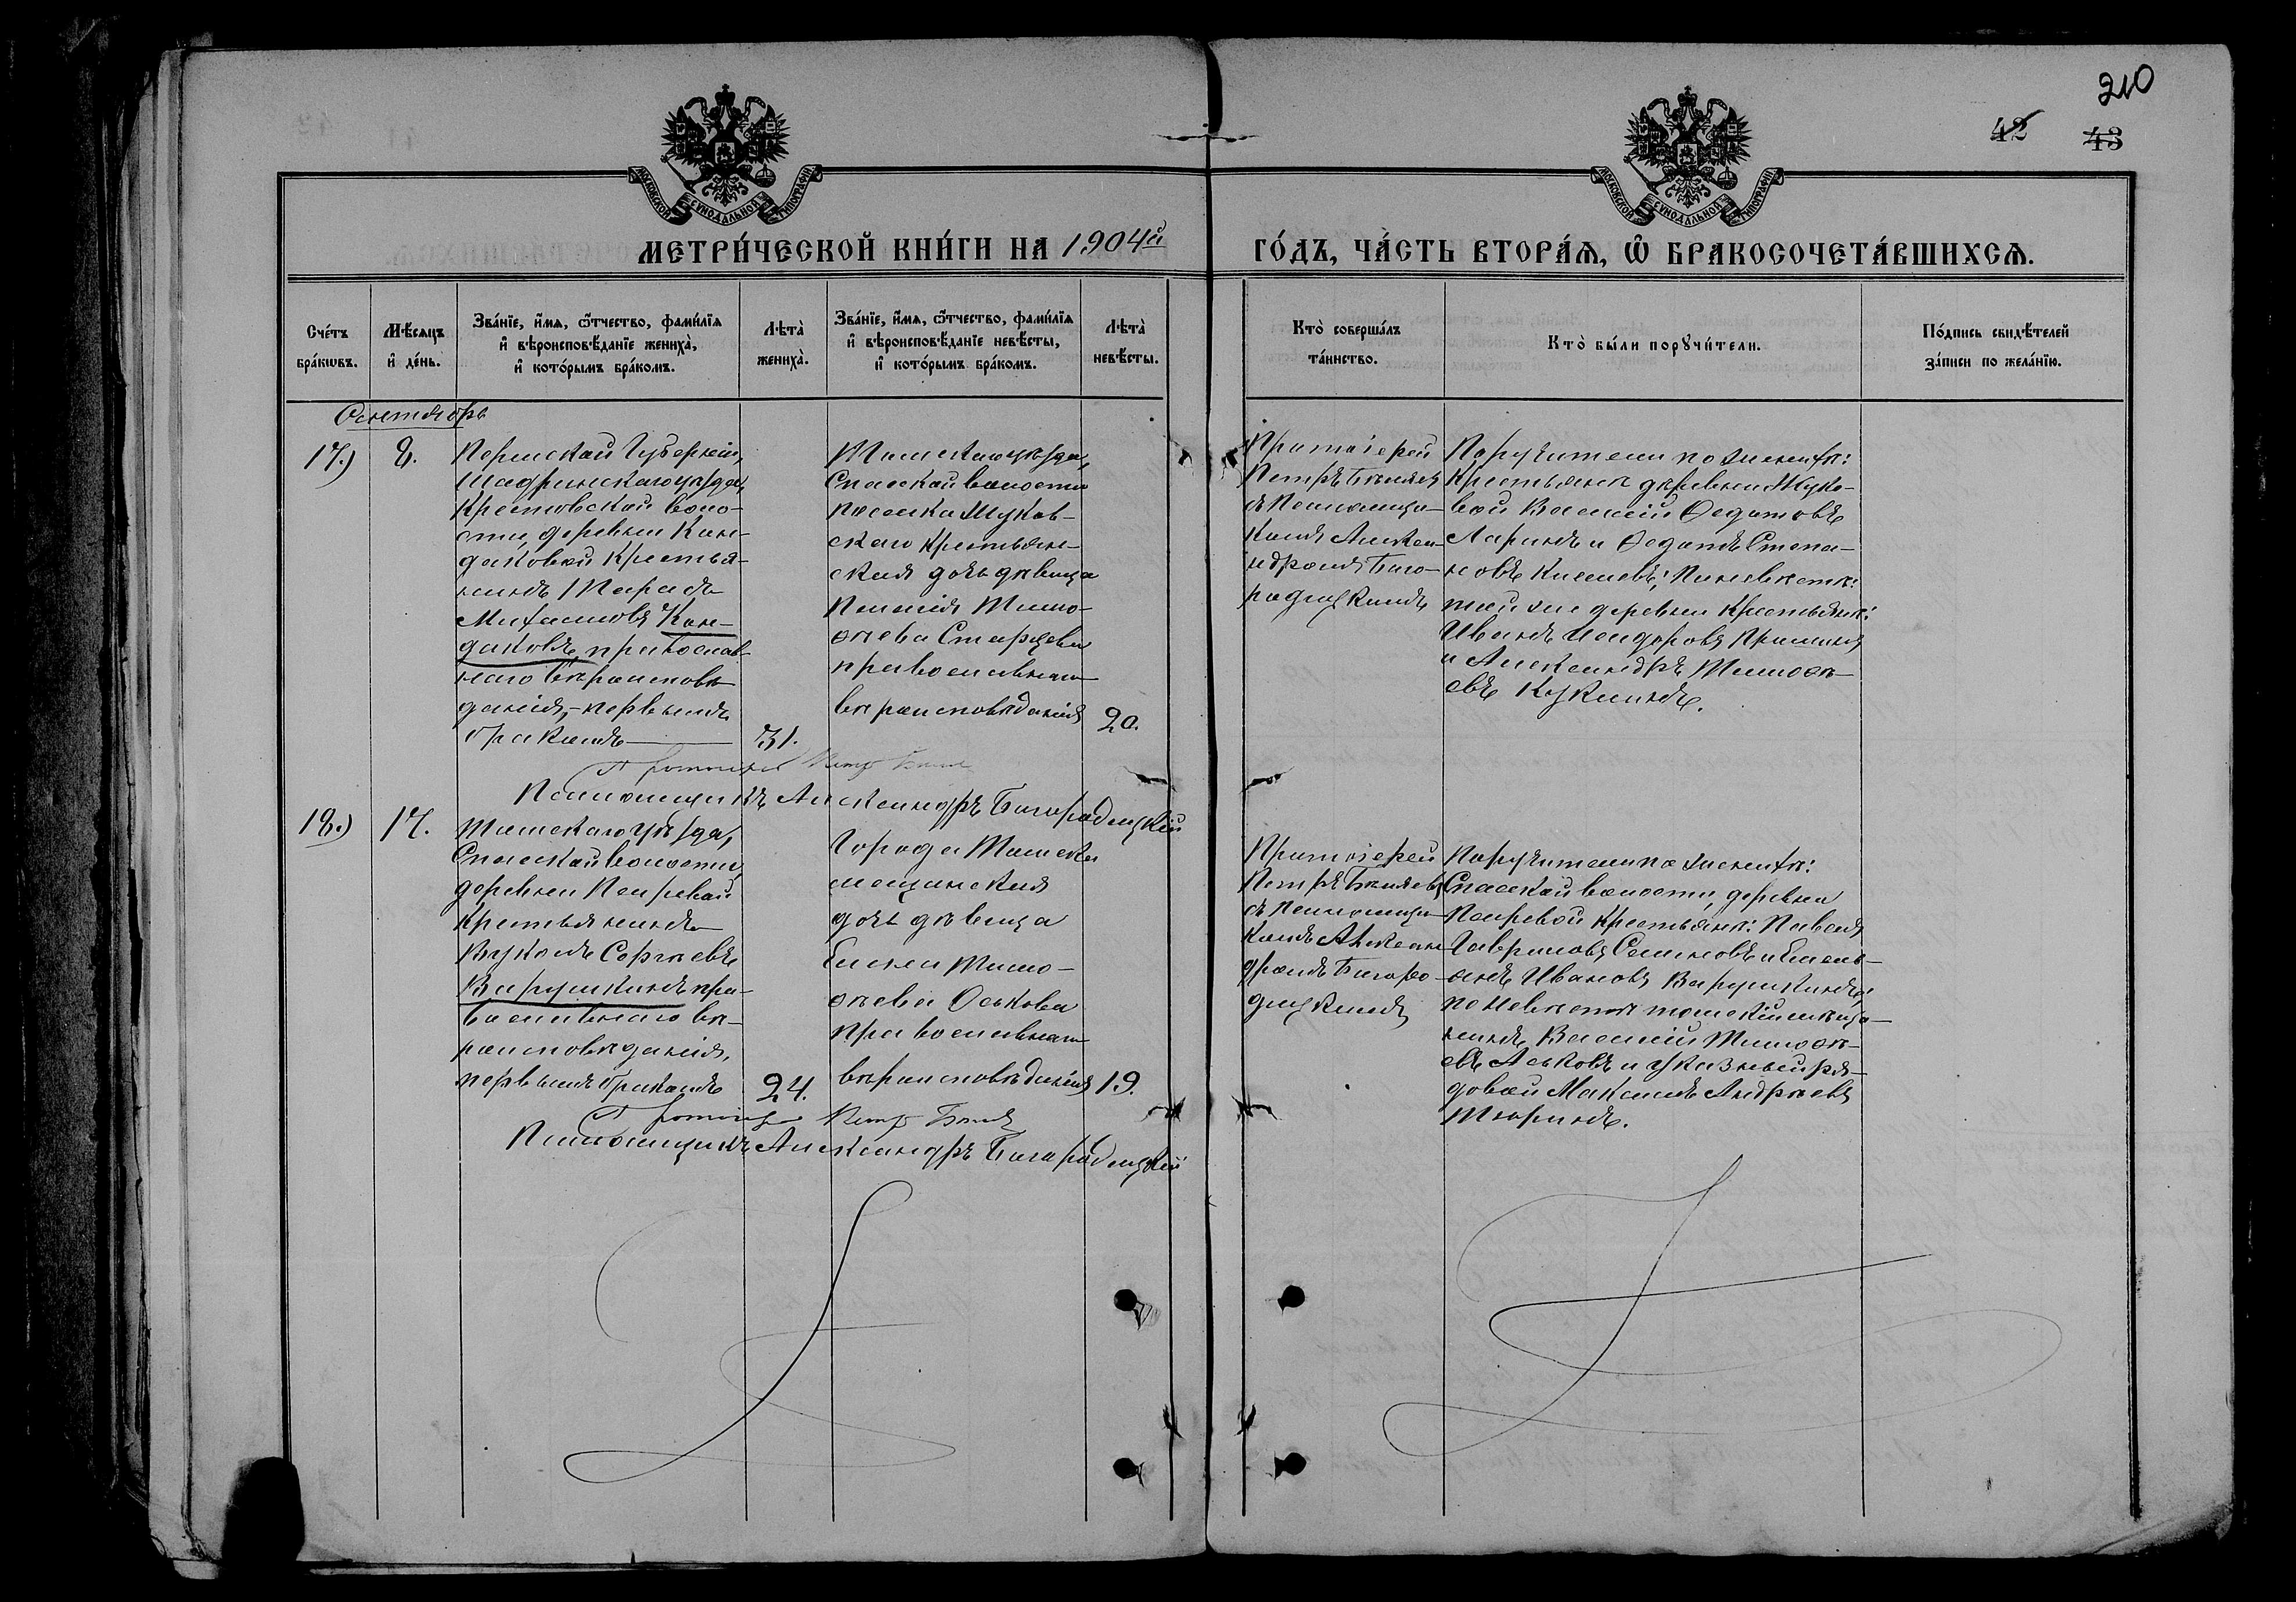 210
42 43
МОСКОВСКОЙ СѴНОДАЛЬНОЙ ТИПОГРАФІИ
МОСКОВСКОЙ СѴНОДАЛЬНОЙ ТИПОГРАФІИ
МЕТРИ́ЧЕСКОЙ КНИ́ГИ НА 1904й
ГО́ДЪ, ЧА́СТЬ ВТОРА́Ѧ, Ѽ БРАКОСОЧЕТА́ВШИХСѦ.
Сче́тъ бра́кѡвъ.
Мѣ́сяцъ и҆ де́нь.
Зва́нїе, и҆́мѧ, ѻ҆́тчество, фамилі́ѧ
и҆ вѣроисповѣ́данїе жениха̀,
и҆ кото́рымъ бра́комъ.
Лѣта̀ жениха̀.
Зва́нїе, и҆́мѧ, ѻ҆́тчество, фамилі́ѧ
и҆ вѣроисповѣ́данїе невѣ́сты,
и҆ кото́рымъ бра́комъ.
Лѣта̀ невѣ́сты.
Кто̀ соверша́лъ та́инство.
Кто̀ бы́ли порꙋчи́тели.
По́дпись свидѣ́телей за́писи по жела́нїю.
Октябрь
17.) 8.
Пермской Губерніи,
Шадринскаго уѣзда,
Крестовской воло-
сти, деревни Кан-
даковой крестья-
нинъ Тарасъ
Михаиловъ Кон-
даковъ, православ-
наго вѣроисповѣ-
данія, первымъ
бракомъ
31.
Томскаго уѣзда,
Спасской волости
поселка Жуков-
скаго крестьян-
ская дочь дѣвица
Пелагія Тимо-
ѳеева Старцева
православнаго
вѣроисповѣданія
20.
Протоіерей
Петръ Бѣляев
съ Помощни-
комъ Алексан-
ндромъ Благо-
радицкимъ
Поручители по женихѣ:
Крестьяне деревни Жуко-
вой Василій Ѳедотовъ
Ларинъ и Ѳедотъ Степа-
новъ Киселевъ; По невѣстѣ:
той же деревни крестьяне:
Иванъ Исидоровъ
и Александръ Тимоѳе-
евъ Кузминъ.
Протоіерей Петръ Бѣляев
Помощникъ Александръ Благорадицкій
18.) 17.
Томскаго Уѣзда,
Спасской волости,
деревни
Крестьянинъ
Вуколъ Сергѣевъ
Варушкинъ пра-
вославнаго вѣ-
роисповѣданія,
первымъ бракомъ
24.
Города Томска
мещанская
дочь дѣвица
Елена Тимо-
ѳеева Оськова
православнаго
вѣроисповѣданія
19.
Протоіерей
Петръ Бѣляевъ
съ Помощни-
комъ Алексан-
дромъ Благоро-
дицкимъ
Поручители по женихѣ:
Спасской волости, деревни
крестьяне: Павелъ
Гавриловъ Семеновъ и Емель-
янъ Ивановъ Варушкинъ;
по невѣстѣ томскій мѣща-
нинъ Василій Тимоѳе-
евъ Аськовъ и указный ря-
довой Максимъ Андреевъ
Тюринъ.
Протоіерей Петръ Бѣляев
Помощникъ Александръ Благорадицкій